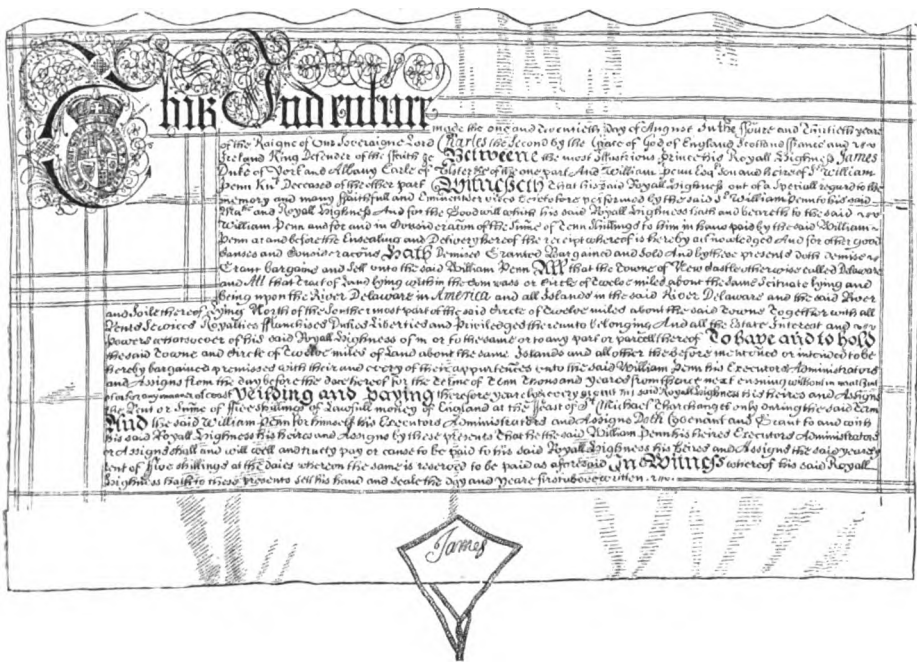 This Indenture
made the one and twentieth day of August In the ffoure and Thirtieth yeare
of the Raigne of Our Soveraigne Lord Charles the Second by the Grace of God of England Scotland ffrance and
Ireland King Defender of the ffaith &c Betweene the most Illustrious Prince his Royall Highness James
Duke of York and Albany Earle of Ulster &c of the one part And William Penn Esqr Son and heire of Sr William
Penn Knt Deceased of the other part Witnesseth That his said Royall Highness out of a Speciall regard to the
memory and many ffaithfull and Eminent services heretofore performed by the said Sr William Penn to his said
Matie and Royall Highness And for the Goodwill which his said Royall Highness hath and beareth to the said
William Penn and for and in Consideracon of the Sume of Tenn Shillings to him in hand paid by the said William
Penn at and before the Ensealing and Delivery hereof the receipt whereof is hereby acknowledged And for other good
Causes and Consideracons Hath Demised Granted Bargained and Sold And by these presents doth demise
Grant bargaine and Sell unto the said William Penn All that the Towne of New Castle otherwise called Delaware
and All that Tract of Land lying within the Compass or Circle of Twelve miles about the same Scituate lying and
being upon the River Delaware in America and all Islands in the said River Delaware and the said River
and Soile thereof lying North of the Southermost part of the said Circle of Twelve miles about the said Towne Together with all
Rents Services Royalties ffranchises Duties Liberties and Priviledges thereunto belonging And all the Estate Interest and
Powers whatsoever of his said Royall Highness of in or to the same or to any part or parcell thereof To have and to hold
the said Towne and Circle of Twelve miles of Land about the same Islands and all other the before mentioned or intended to be
hereby bargained premisses with their and every of their appurtences unto the said William Penn his Executors Administrators
and Assigns from the day before the date hereof for the Terme of Tenn Thousand Yeares from thence next ensuing without
Yeilding and Paying therefore yearly and every year to his said Royall Highness his heires and Assigns
the Rent or Sume of ffive shillings of Lawfull money of England at the ffeast of St Michael Tharchangel only during the said Term
And the said William Penn for himself his Executors Administrators and Assigns Doth Covenant and Grant to and with
his said Royall Highness his heires and Assigns by these presents That he the said William Penn his heires Executors Administrators
or Assigns shall and will well and truely pay or cause to be paid to his said Royall Highness his heires and Assigns the said yearely
rent of ffive shillings at the daies whereon the same is reserved to be paid as aforesaid In Witness whereof his said Royall
Highness hath to these presents sett his hand and seale the day and Yeare first above written.
James